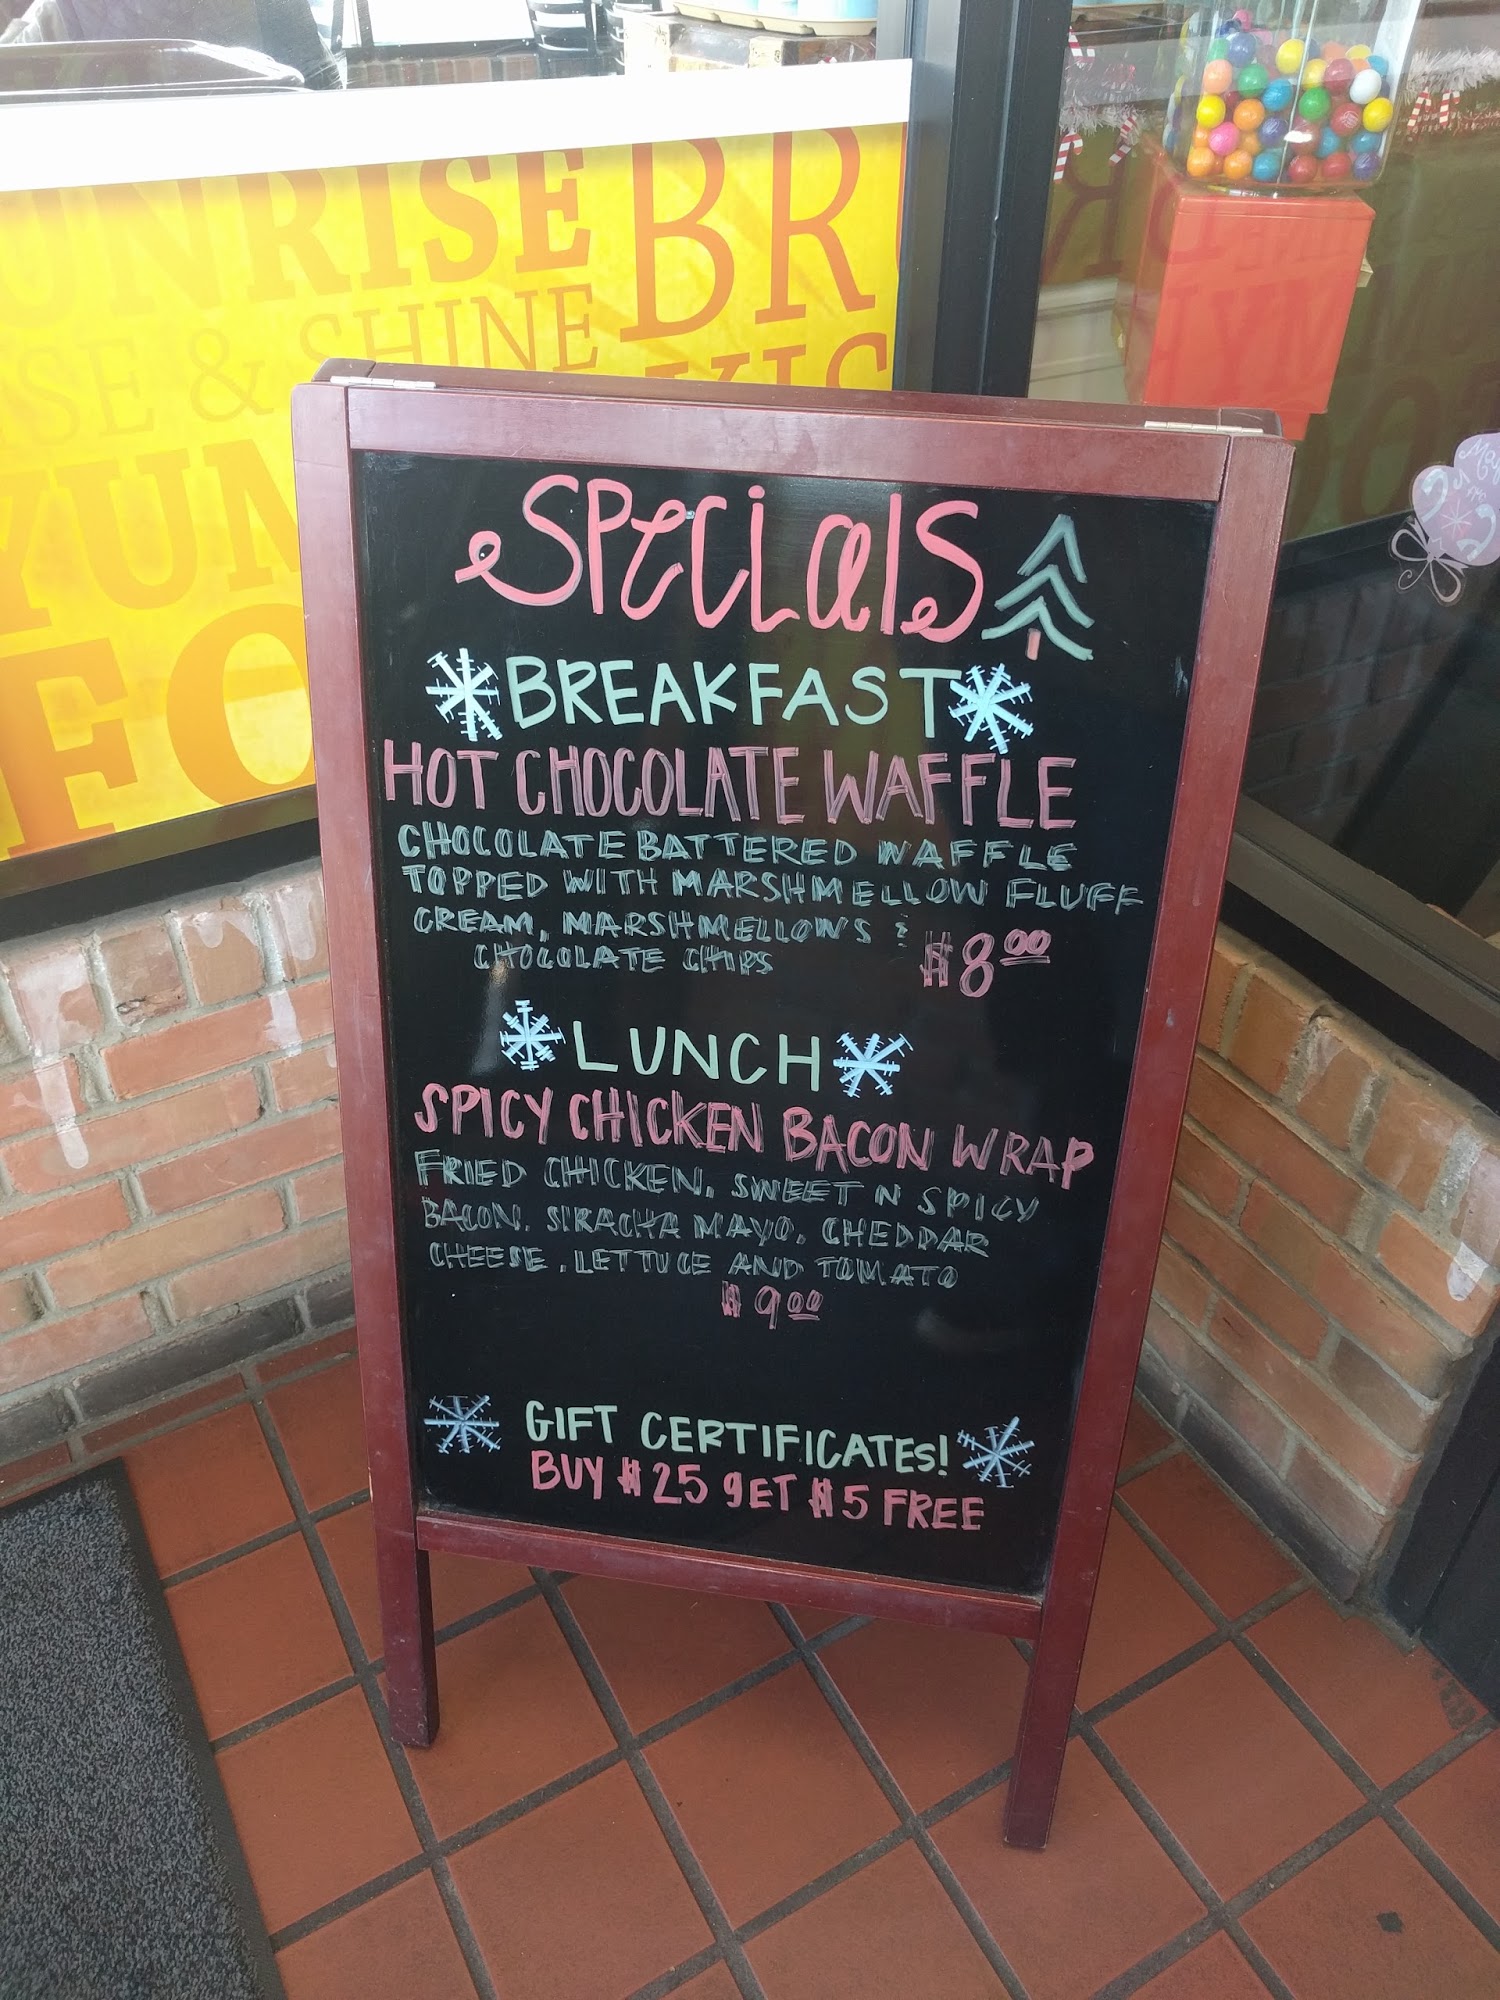 UNRISE BR
SE & SHINE
YUM
FO
SPECIALS
BREAKFAST
HOT CHOCOLATE WAFFLE
CHOCOLATE BATTERED WAFFLE
TOPPED WITH MARSHMELLOW FLUFF
CREAM, MARSHMELLOWS &
CHOCOLATE CHIPS $8.00
LUNCH
SPICY CHICKEN BACON WRAP
FRIED CHICKEN, SWEET N SPICY
BACON, SIRACHA MAYO, CHEDDAR
CHEESE, LETTUCE AND TOMATO
$9.00
GIFT CERTIFICATES!
BUY $25 GET $5 FREE